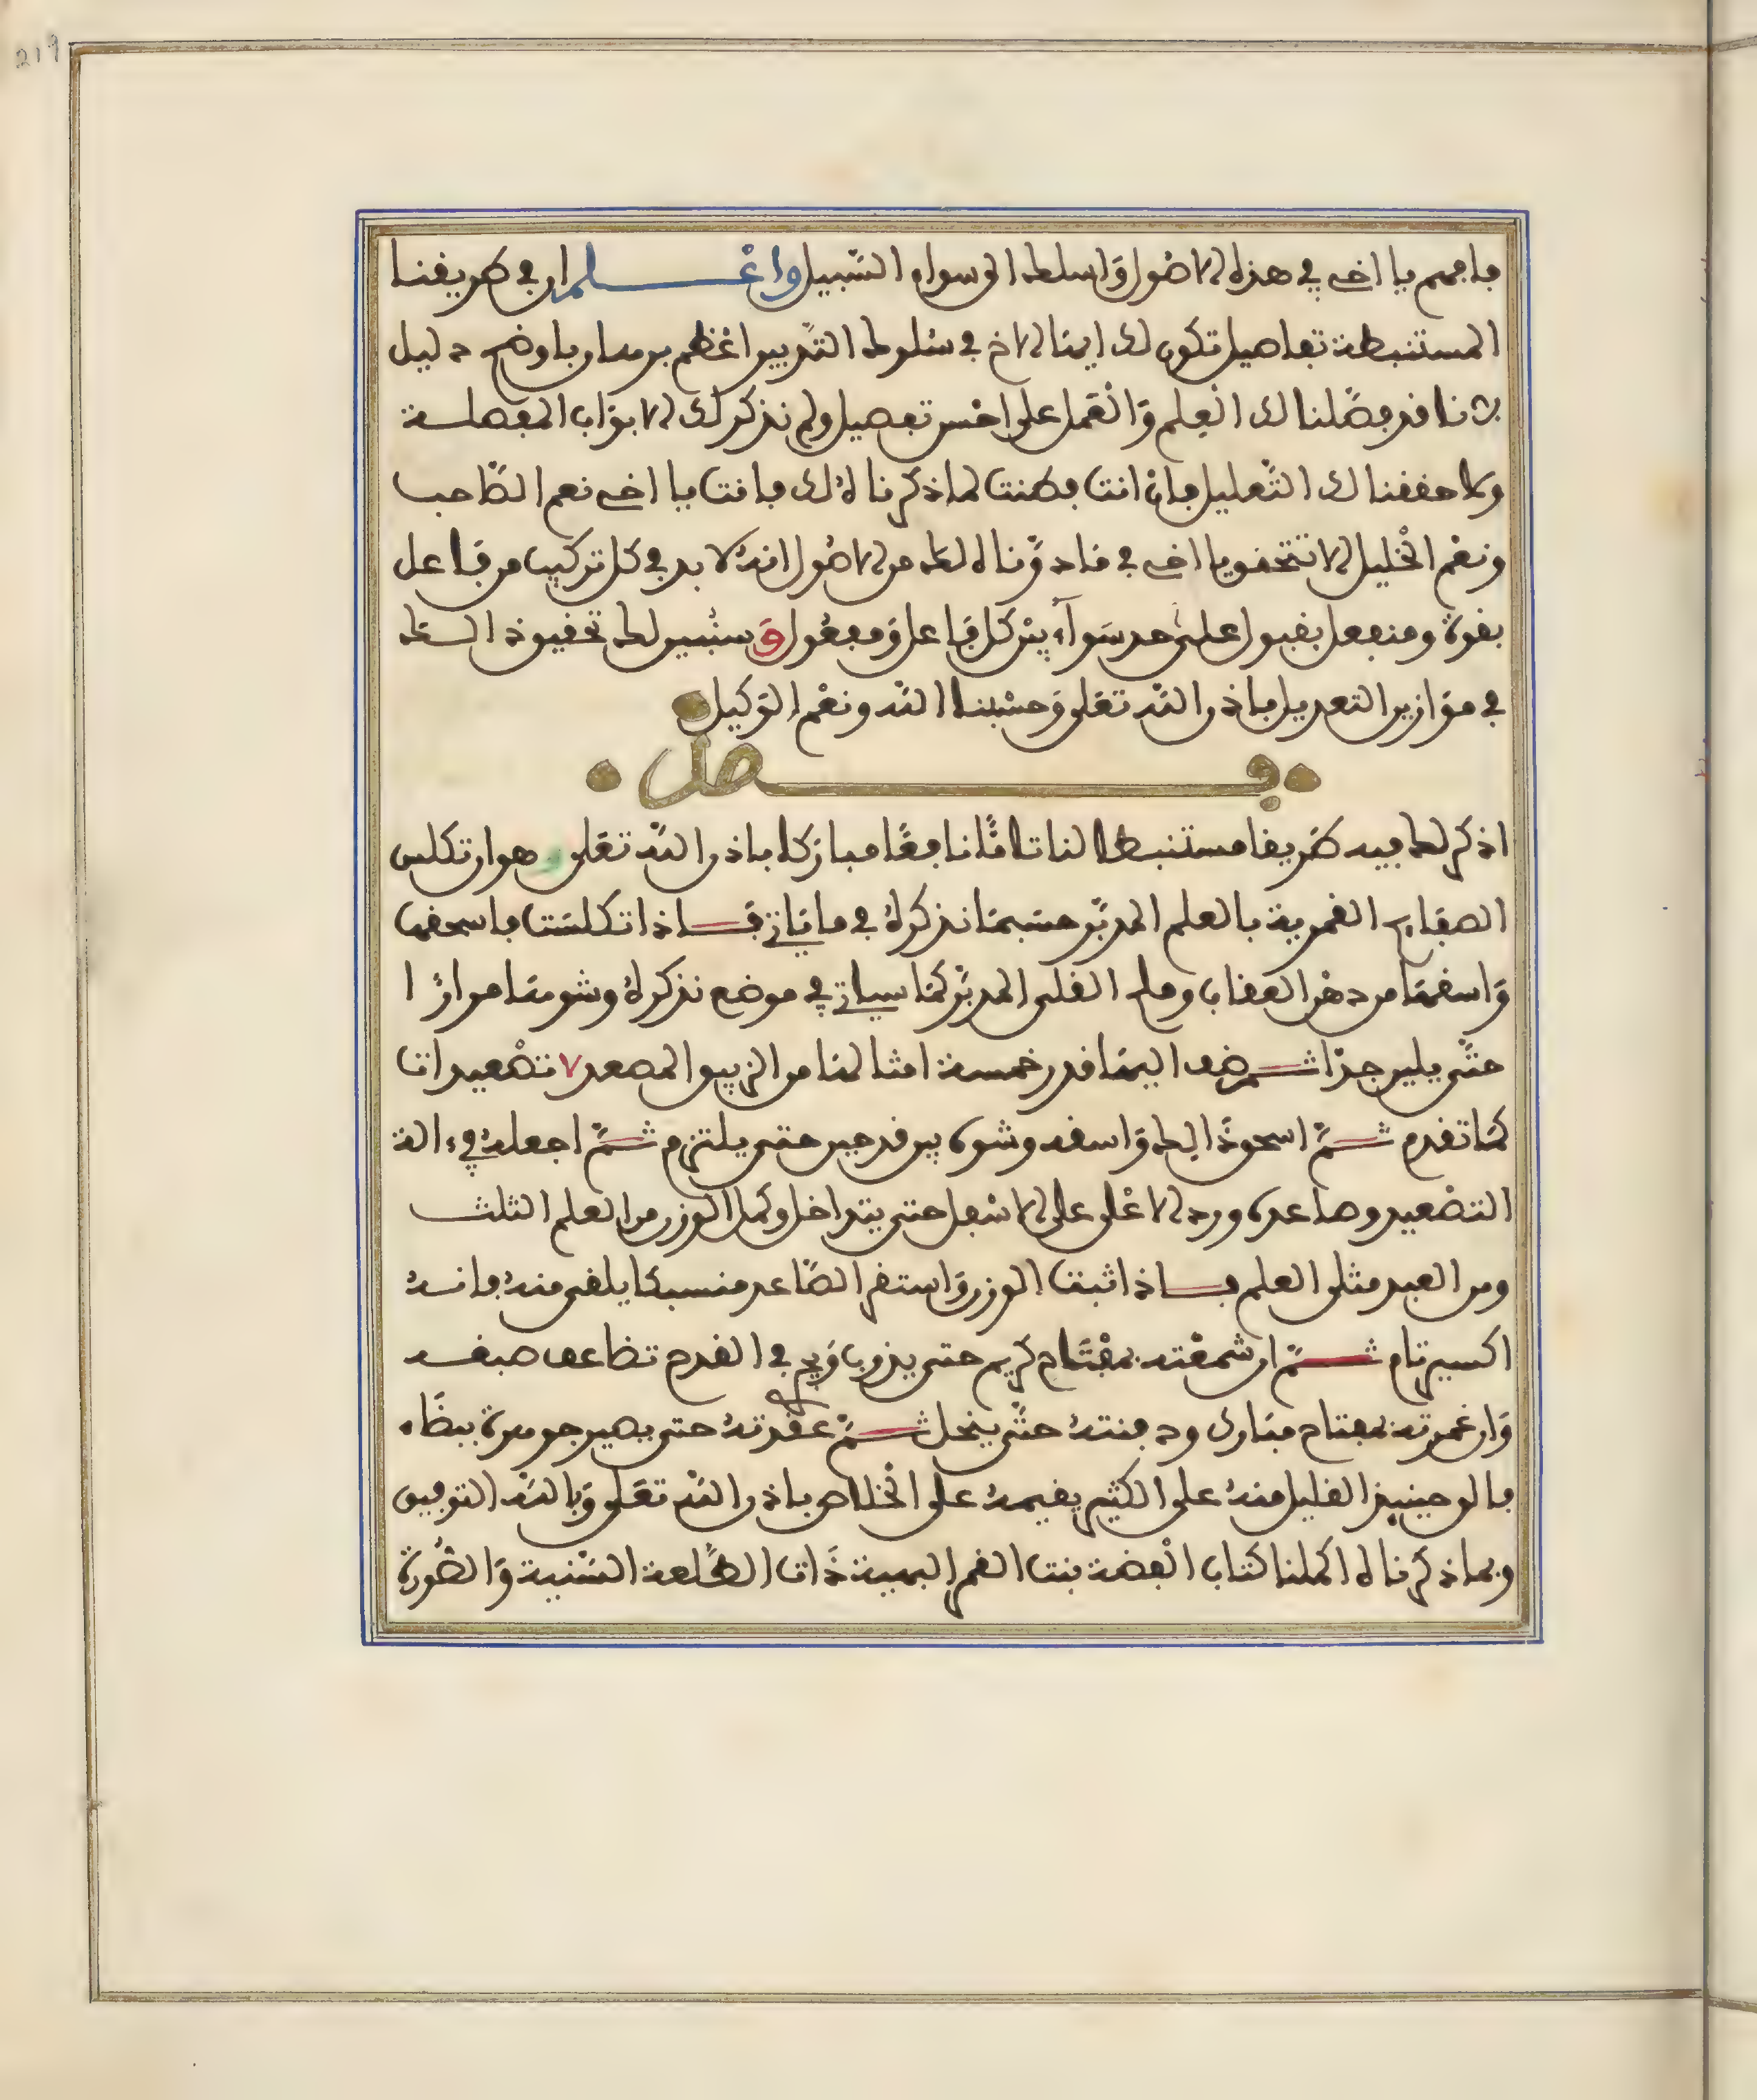 219
فافهم يا اخي في هذه الاصول واسلك الى سواء السبيل واعلم ان في طريقنا
المستنبطة تفاصيل تكون لك ايها الاخ في سلوك التدبير اعظم برهان واوضح دليل
لاننا قد فصلنا لك العلم والعمل على احسن تفصيل ولم نذكر لك الابواب المفصلة
وحققنا لك التعليل فان انت فطنت لما ذكرناه لك فانت يا اخي نعم الصاحب
ونعم الخليل الا تتحقق يا اخي في ما دوناه لك من الاصول انه لا بد في كل تركيب من فاعل
بقوة ومنفعل بقبول على حد سواء بين كل فاعل ومفعول وسنبين لك تحقيق ذالك
في موازين التعديل باذن الله تعلى وحسبنا الله ونعم الوكيل
فصل
اذكر لك فيه طريقا مستنبطا لنا تاما نافعا مباركا باذن الله تعلى وهو ان تكلس
الصفايح القمرية بالعلم المدبر حسبما نذكره في ما ياتي فاذا تكلست فاسحقها
واسقها من دهن العقاب وملح القلي المدبر كما سياتي في موضع نذكره وشوها مرارا
حتى يلين جدا ثم ضف اليها قدر خمسة امثالها من الزيبق المصعد ٧ تصعيدات
كما تقدم ثم اسحق ذالك واسقه وشوه بين قدحين حتى يلتزم ثم اجعله في ءالة
التصعيد وصاعده ورد الاعلى على الاسفل حتى يتداخل وكمل الوزن من العلم الثلث
ومن العبد مثلى العلم فاذا ثبت الوزن واستقر الصاعد منسبكا يلقى منه فانه
اكسير تام ثم ان شمعته بمفتاح كريم حتى يذوب ويجري في القدح تضاعف صبغه
وان غمرته بمفتاح مبارك ودفنته حتى ينحل ثم عقدته حتى يصير جوهرة بيضاء
فالق حينيذ القليل منه على الكثير يقيمه على الخلاص باذن الله تعلى وبالله التوفيق
وبما ذكرناه اكملنا كتاب الفضة بنت القمر البهية ذات الطلعة السنية والصورة